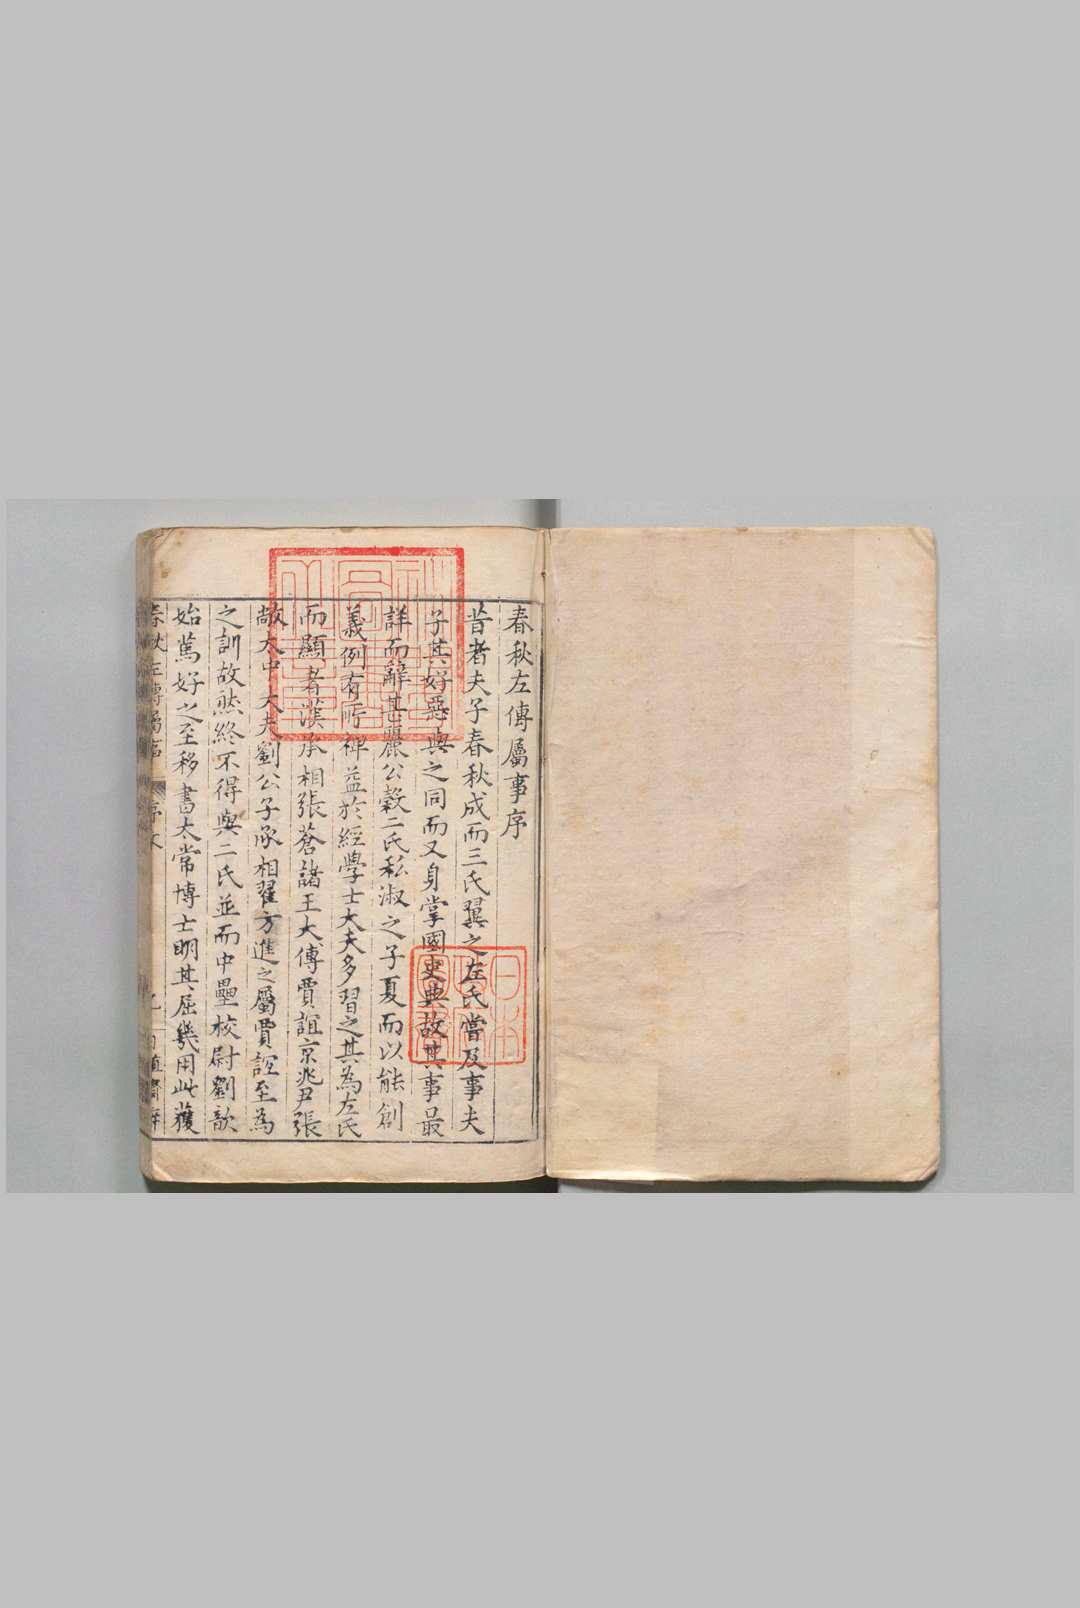 春秋左傳屬事序
昔者夫子春秋成而三氏翼之左氏嘗及事夫
子其好惡與之同而又身掌國史典故其事最
詳而辭甚麗公穀二氏私淑之子夏而以能創
義例有所裨益於經學士大夫多習之其為左氏
而顯者漢丞相張蒼諸王大傅賈誼京兆尹張
敞太中大夫劉公子丞相翟方進之屬賈誼至為
之訓故然終不得與二氏並而中壘校尉劉歆
始篤好之至移書太常博士明其屈幾用此獲
春秋左傳屬事
序文
日本